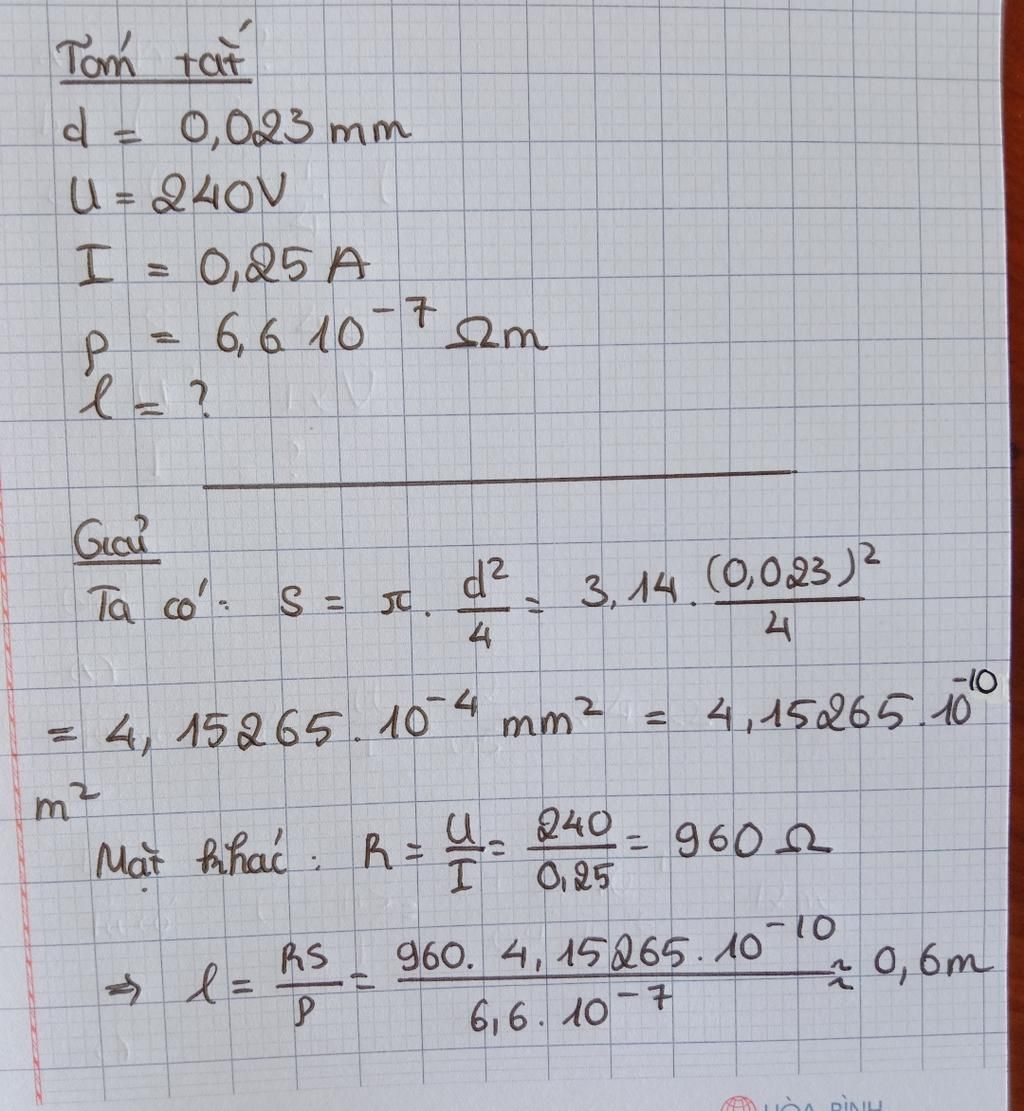 Tóm tắt
d = 0,023 mm
U = 240V
I = 0,25 A
ρ = 6,6 10⁻⁷ Ωm
l = ?
Giải
Ta có: S = π. d²/4 = 3,14. (0,023)²/4
= 4,15265.10⁻⁴ mm² = 4,15265.10⁻¹⁰
m²
Mặt khác: R = U/I = 240/0,25 = 960 Ω
⇒ l = RS/ρ = 960. 4,15265.10⁻¹⁰/6,6.10⁻⁷ ≈ 0,6m
HÒA BÌNH